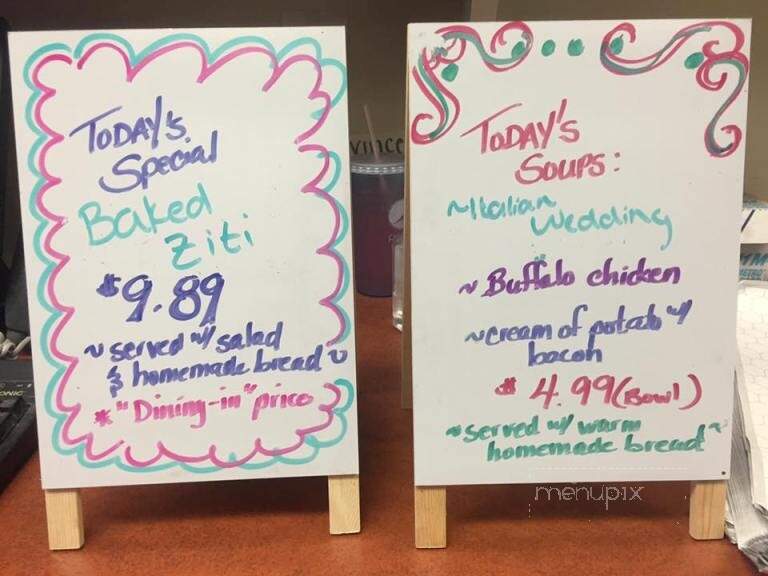 TODAY'S
Special
Baked
Ziti
$9.89
~ served w/ salad
& homemade bread ~
* "Dining-in" price
TODAY'S
SOUPS:
~Italian
Wedding
~ Buffalo chicken
~cream of potato w/
bacon
$ 4.99 (Bowl)
~served w/ warm
homemade bread~
menupix